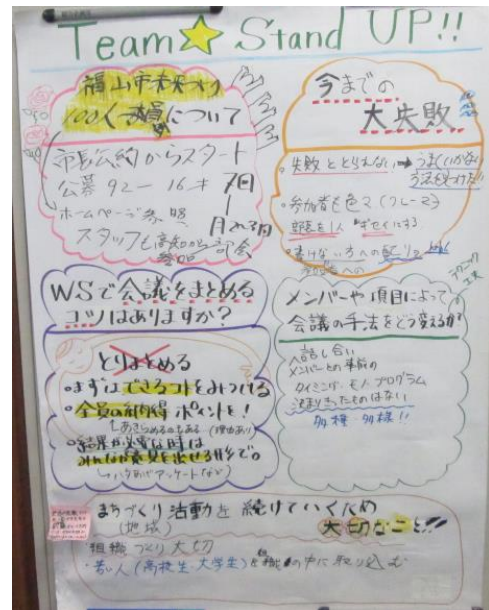 Team☆Stand UP!!
福山市未来づくり
100人委員について
市長公約からスタート
公募 92ー16才 7回
ホームページ参照
月2~3回
スタッフも高知から部会
参加
今までの
大失敗
・失敗ととられない→うまくいかない
方法を見つけた!!
・参加者も色々(クレーマー)
部長を1人
・書けない方への配りょ
参加者への
WSで会議をまとめる
コツはありますか?
とりまとめる
・まずはできるコトをみつける
・全員の納得ポイントを!
あきらめるのもある(理由あり)
・結果が必要な時は
みんなが意見を出せる形で。
メンバーや項目によって
会議の手法をどう変えるか?
テクニック
工夫
話し合い
メンバーとの事前の
タイミング・モノ・プログラム
決まりきったものはない
多種・多様!!
まちづくり活動を続けていくため
(地域)
大切なこと!!!
・組織づくり大切
・若い人(高校生・大学生)を組織の中に取り込む